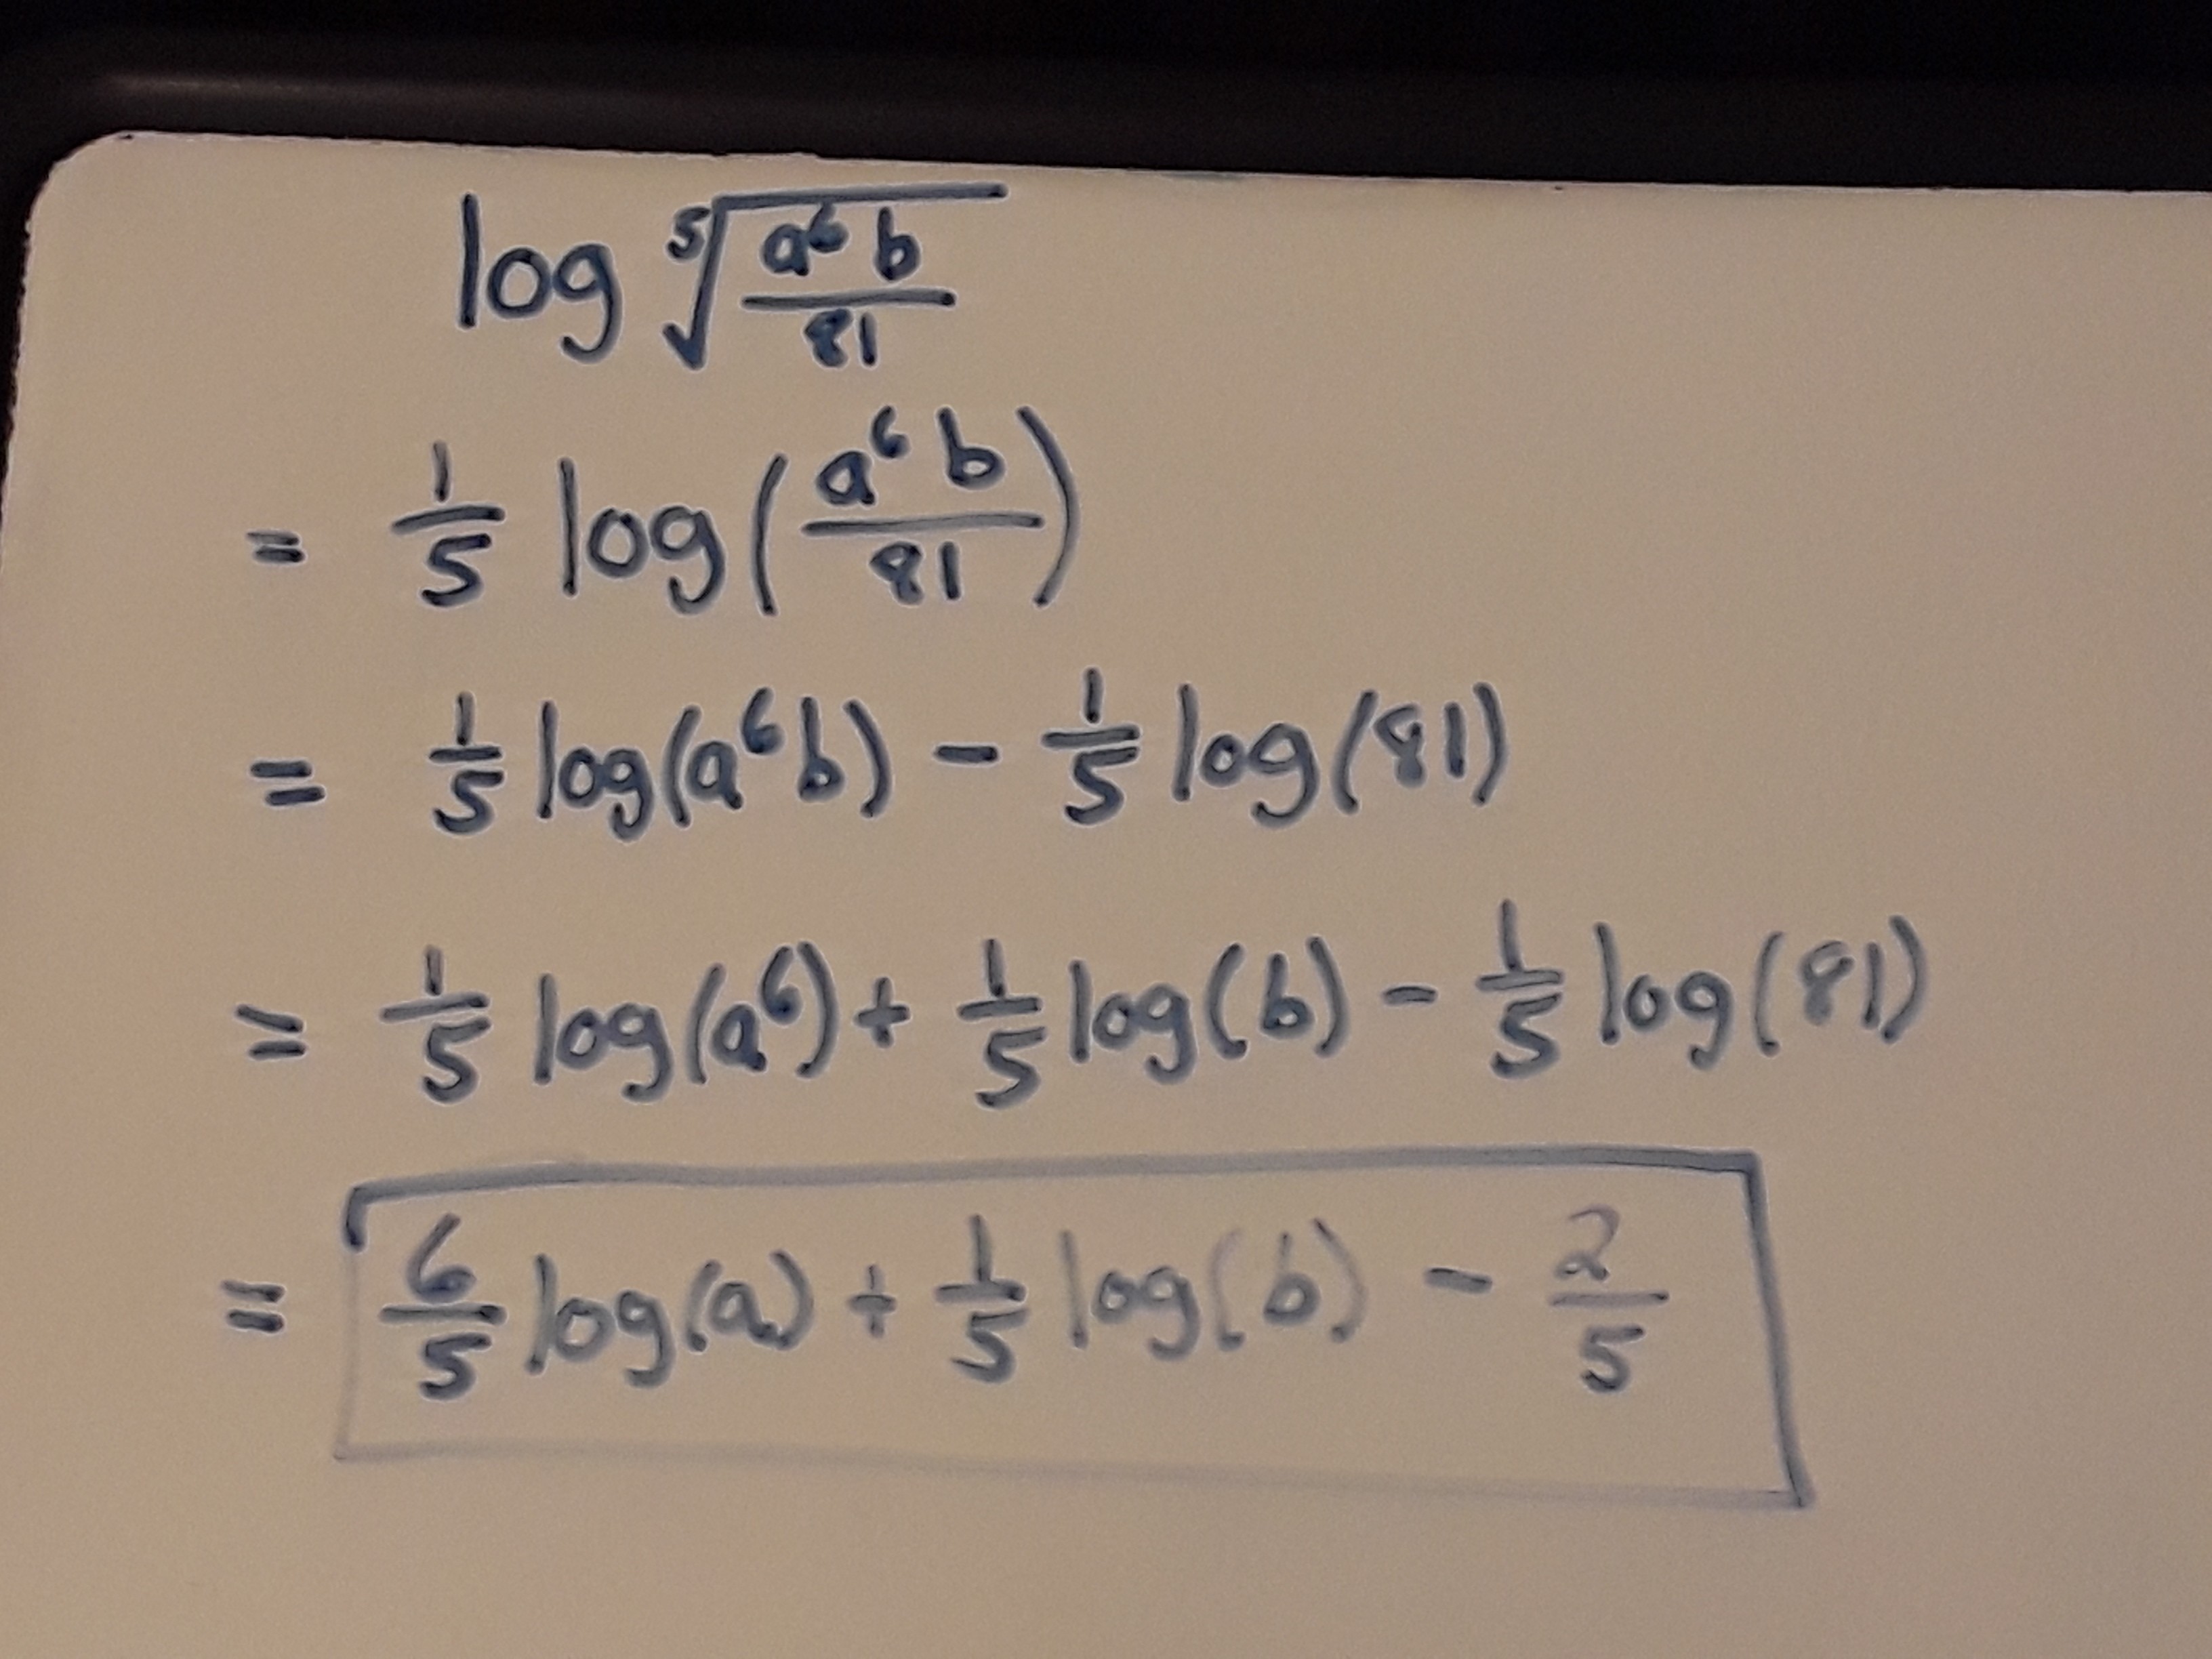 log ⁵√(a⁶b/81)
= 1/5 log(a⁶b/81)
= 1/5 log(a⁶b) - 1/5 log(81)
= 1/5 log(a⁶) + 1/5 log(b) - 1/5 log(81)
= 6/5 log(a) + 1/5 log(b) - 2/5